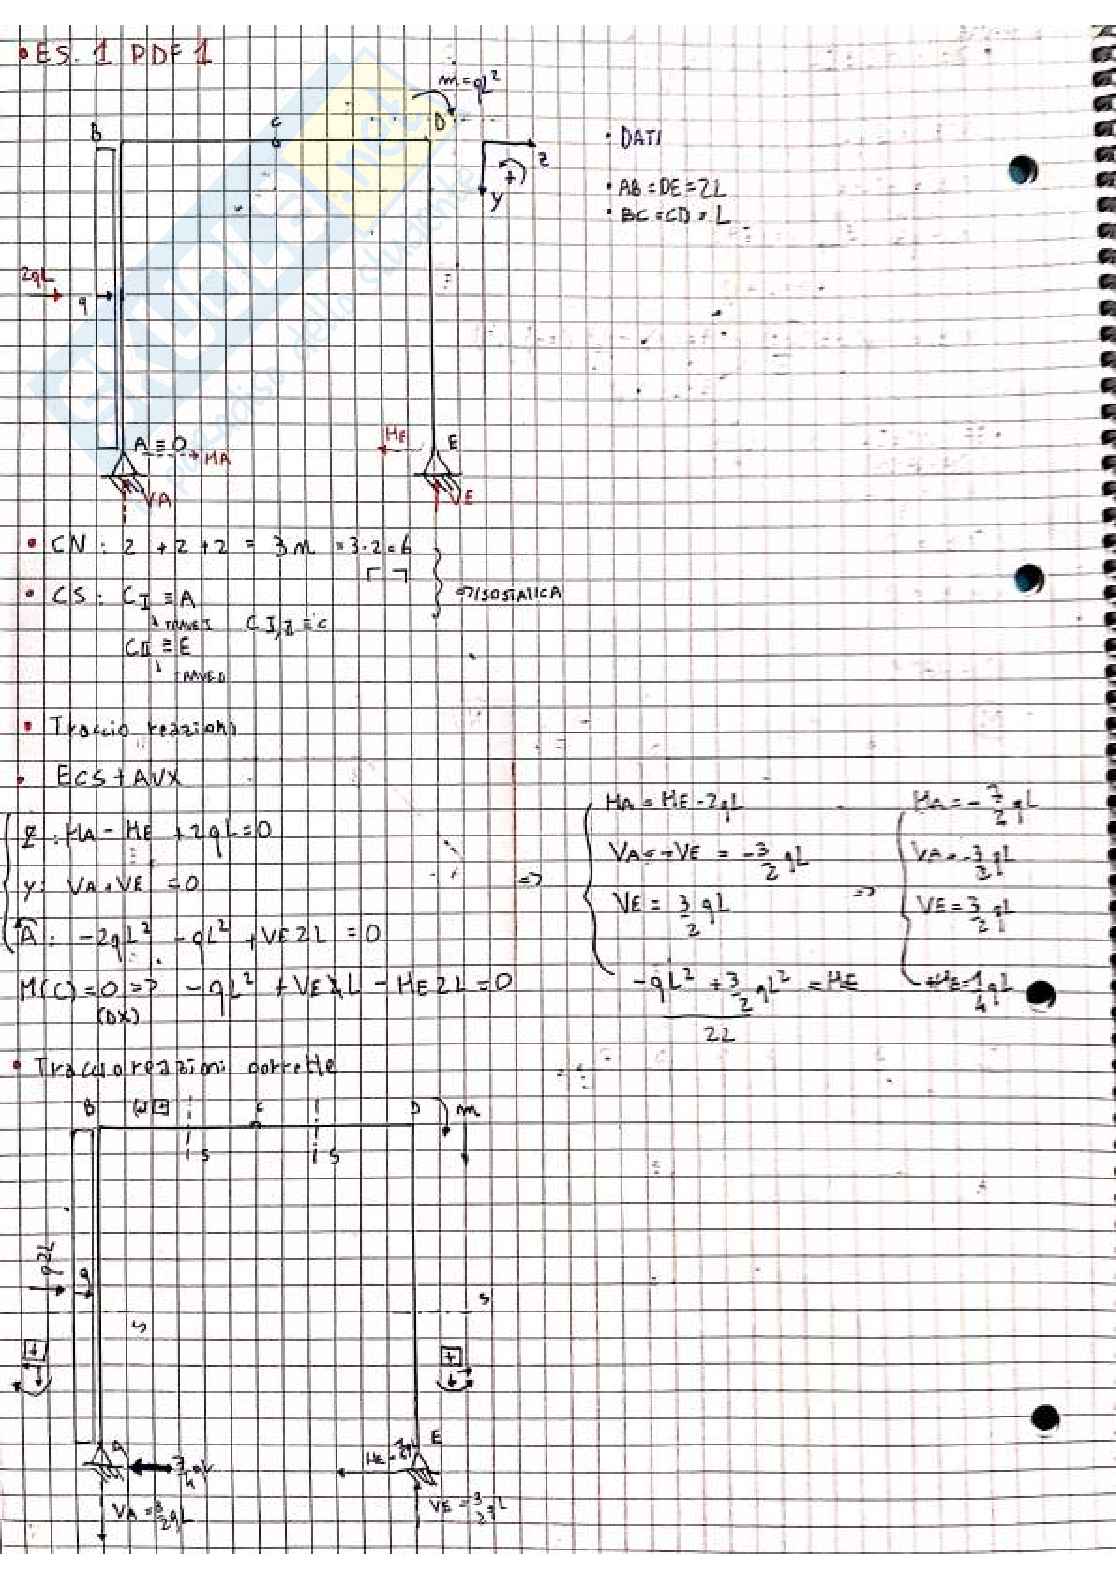 • ES. 1 PDF 1
m = qL²
B
C
D
z
(+)
y
• DATI
• AB = DE = 2L
• BC = CD = L
2qL
q
A ≡ O
HA
HE
E
VA
VE
• CN: 2 + 2 + 2 = 3m = 3·2 = 6
• CS: CI ≡ A
TRAVE I
CI,II ≡ C
CII ≡ E
ISOSTATICA
• Traccio reazioni
• ECS + AUX
Z: HA - HE + 2qL = 0
Y: VA + VE = 0
A: -2qL² - qL² + VE 2L = 0
M(C) = 0 => -qL² + VE L - HE 2L = 0
(DX)
=>
HA = HE - 2qL
VA = -VE = -3/2 qL
VE = 3/2 qL
-qL² + 3/2 qL² = HE
2L
=>
HA = -7/2 qL
VA = -3/2 qL
VE = 3/2 qL
HE = 1/4 qL
• Traccio reazioni corrette
B
C
D
m
S
S
q2L
q
S
S
+
+
A
7/4 qL
VA = 3/2 qL
E
VE = 3/2 qL